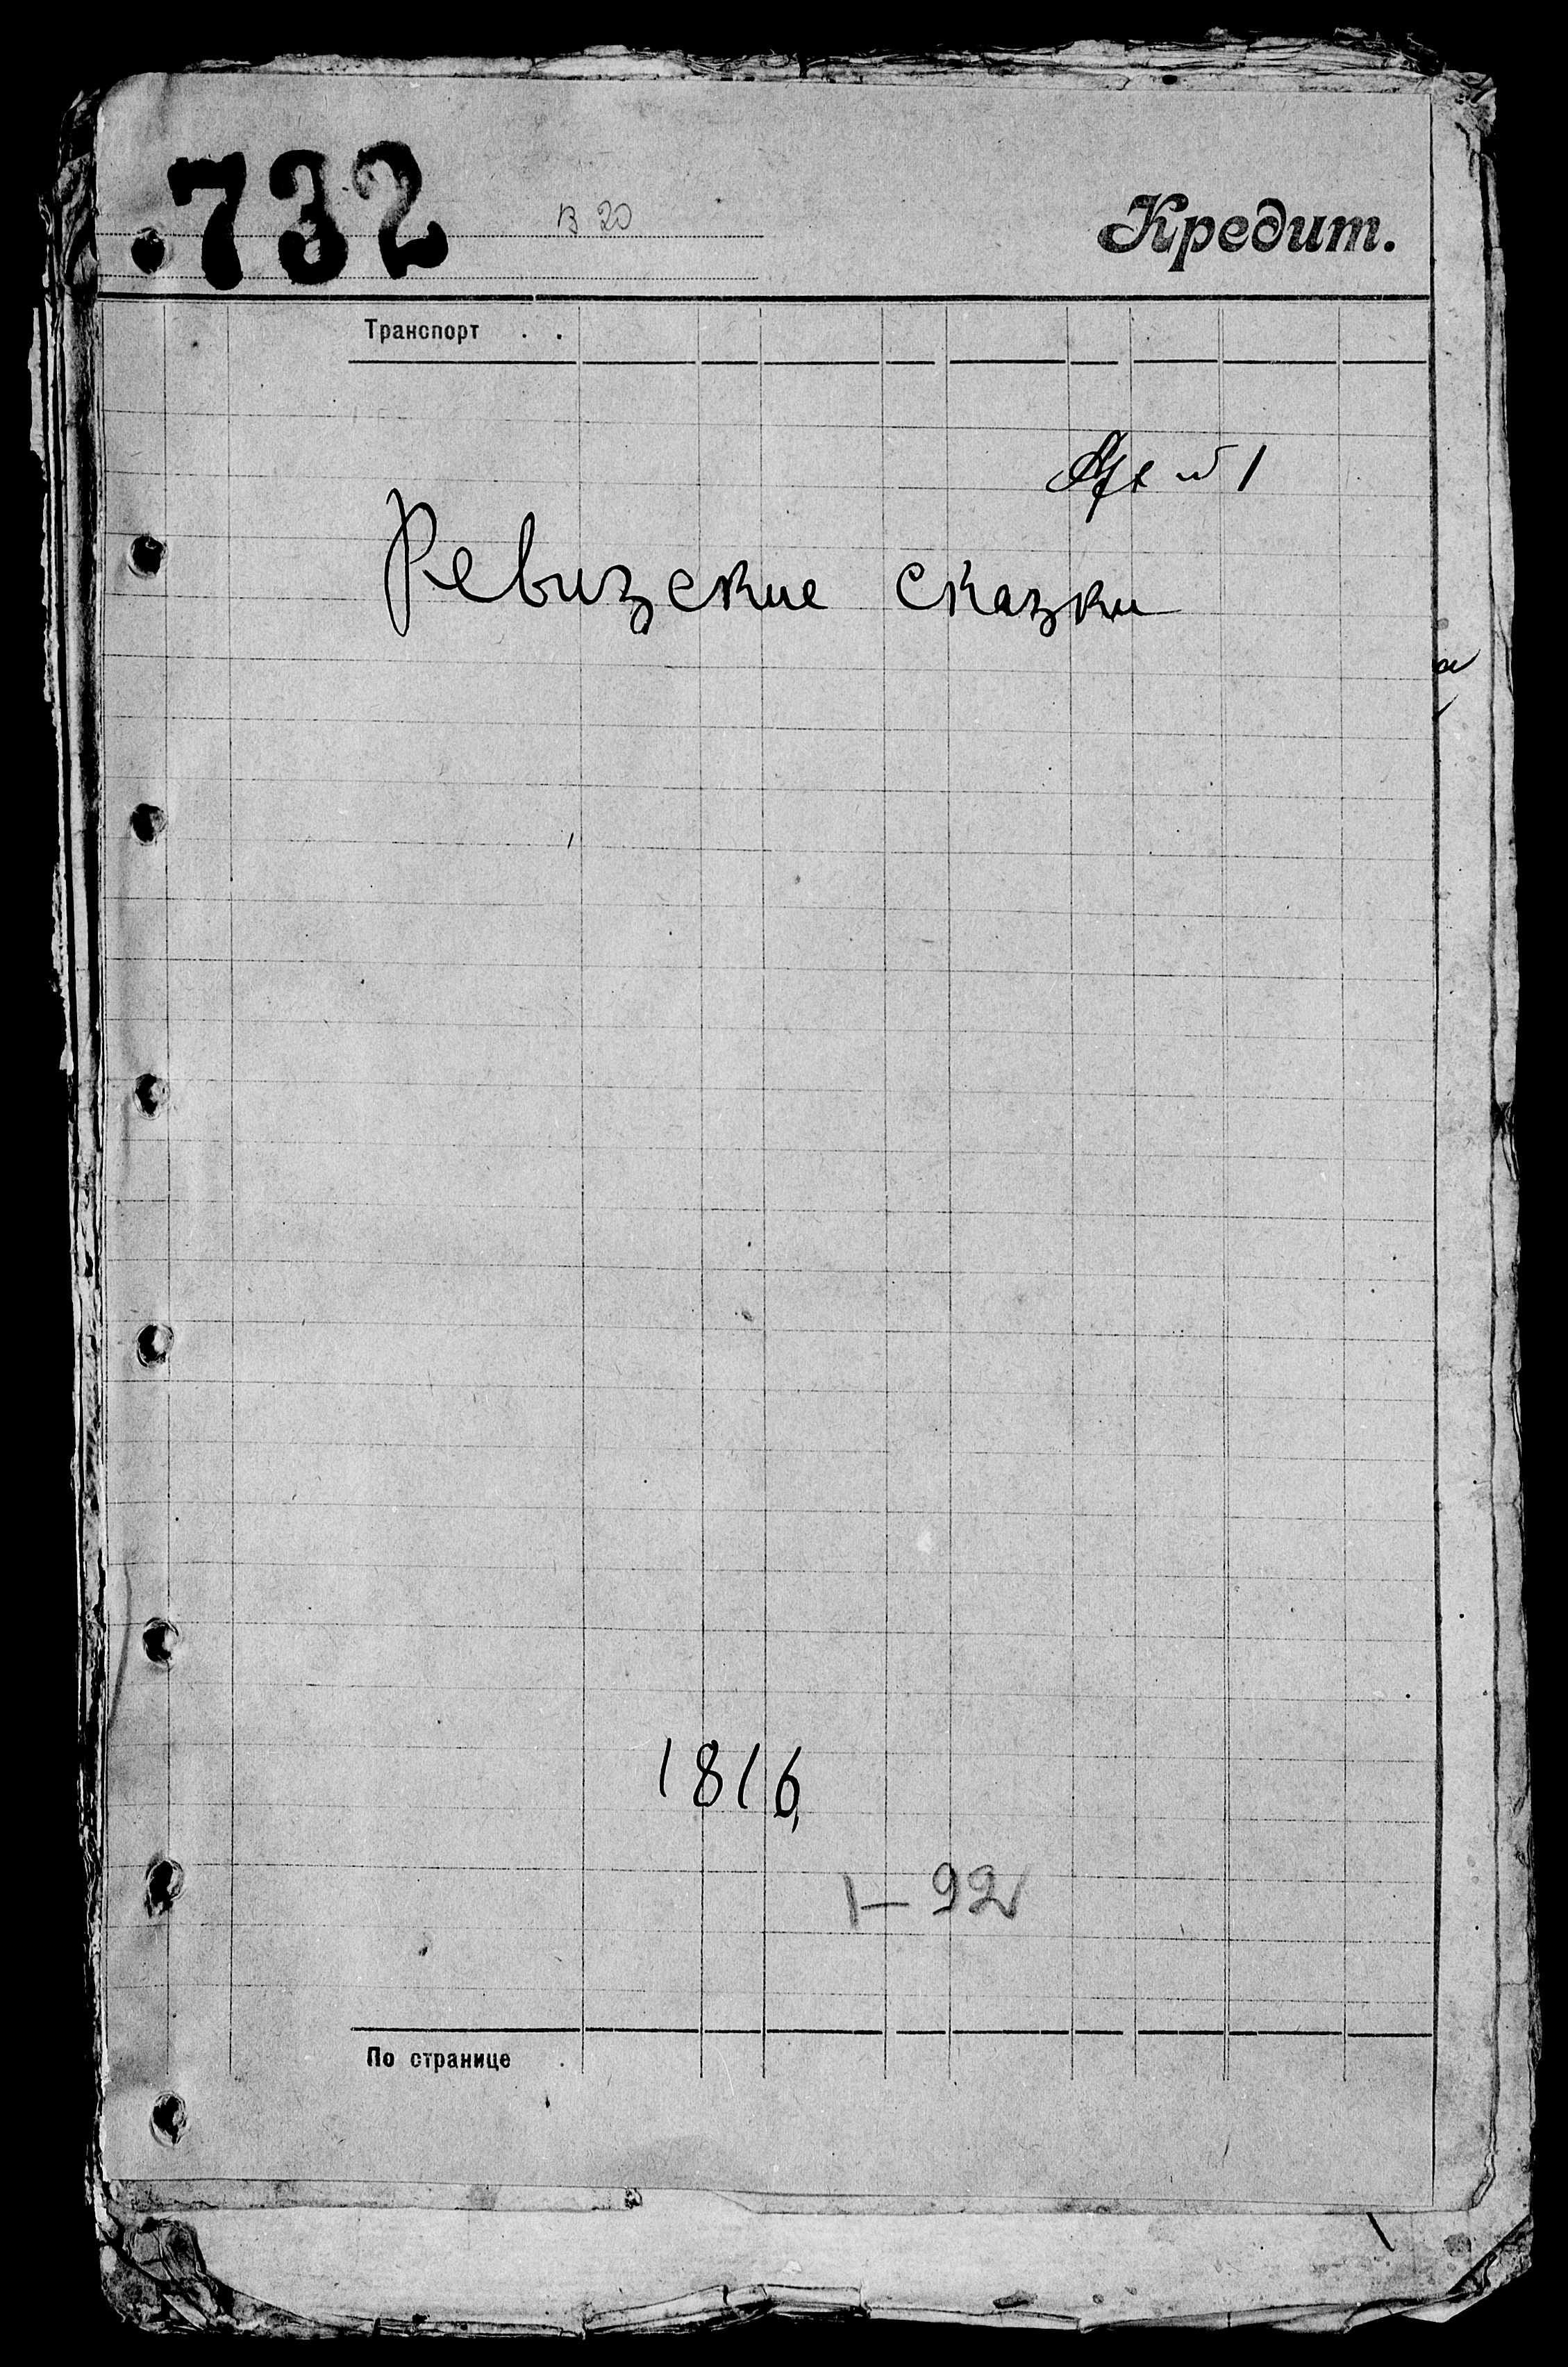 732
В 20
Кредит.
Транспорт . .
№ 1
Ревизские сказки
1816
1–92
По странице .